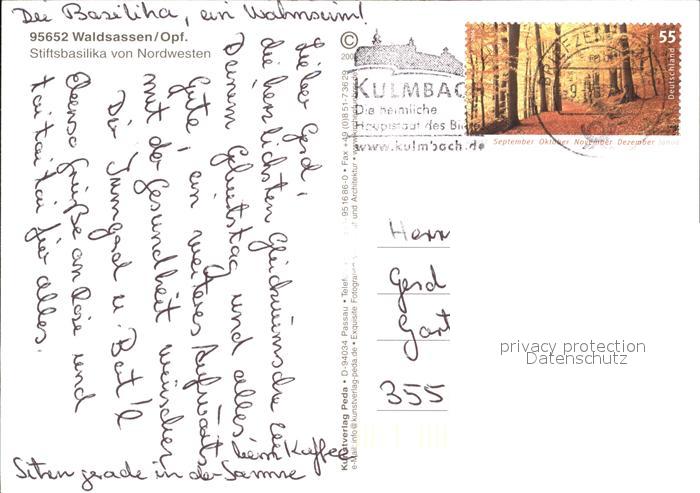 Die Basilika, ein Wahnsinn!
95652 Waldsassen/Opf.
Stiftsbasilika von Nordwesten
Lieber Gerd,
die herzlichsten Glückwünsche zu
Deinem Geburtstag und alles
Gute, ein weiteres Aufwärts
mit der Gesundheit wünschen
Dir Irmgard u. Bert'l
Ebenso Grüße an Rose und
tai tai tai für alles.
Sitzen gerade in der Sonne
beim Kaffee
©
Kunstverlag Peda • D-94034 Passau •
e-Mail: info@kunstverlag-peda.de • Exquisite
951686-0 • Fax +49 (0)851-73629
und Architektur •
KULMBACH
Die heimliche
Hauptstadt des Bi
www.kulmbach.de
BRIEFZEN
55
Deutschland
September Oktober November Dezember
Herr
Gerd
355
privacy protection
Datenschutz